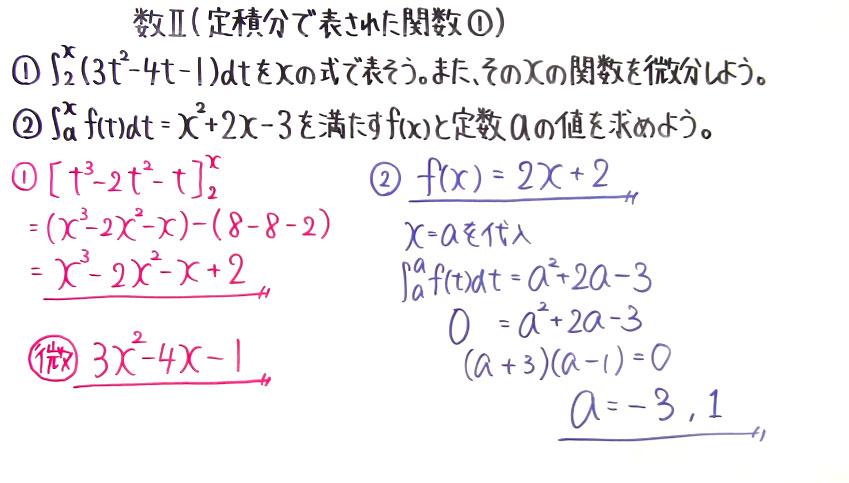 数Ⅱ(定積分で表された関数①)
① ∫₂ˣ(3t²-4t-1)dtをxの式で表そう。また、そのxの関数を微分しよう。
② ∫ₐˣ f(t)dt = x²+2x-3を満たすf(x)と定数aの値を求めよう。
① [t³-2t²-t]₂ˣ
=(x³-2x²-x)-(8-8-2)
= x³-2x²-x+2
微 3x²-4x-1
② f(x) = 2x+2
x=aを代入
∫ₐᵃ f(t)dt = a²+2a-3
0 = a²+2a-3
(a+3)(a-1)=0
a=-3, 1